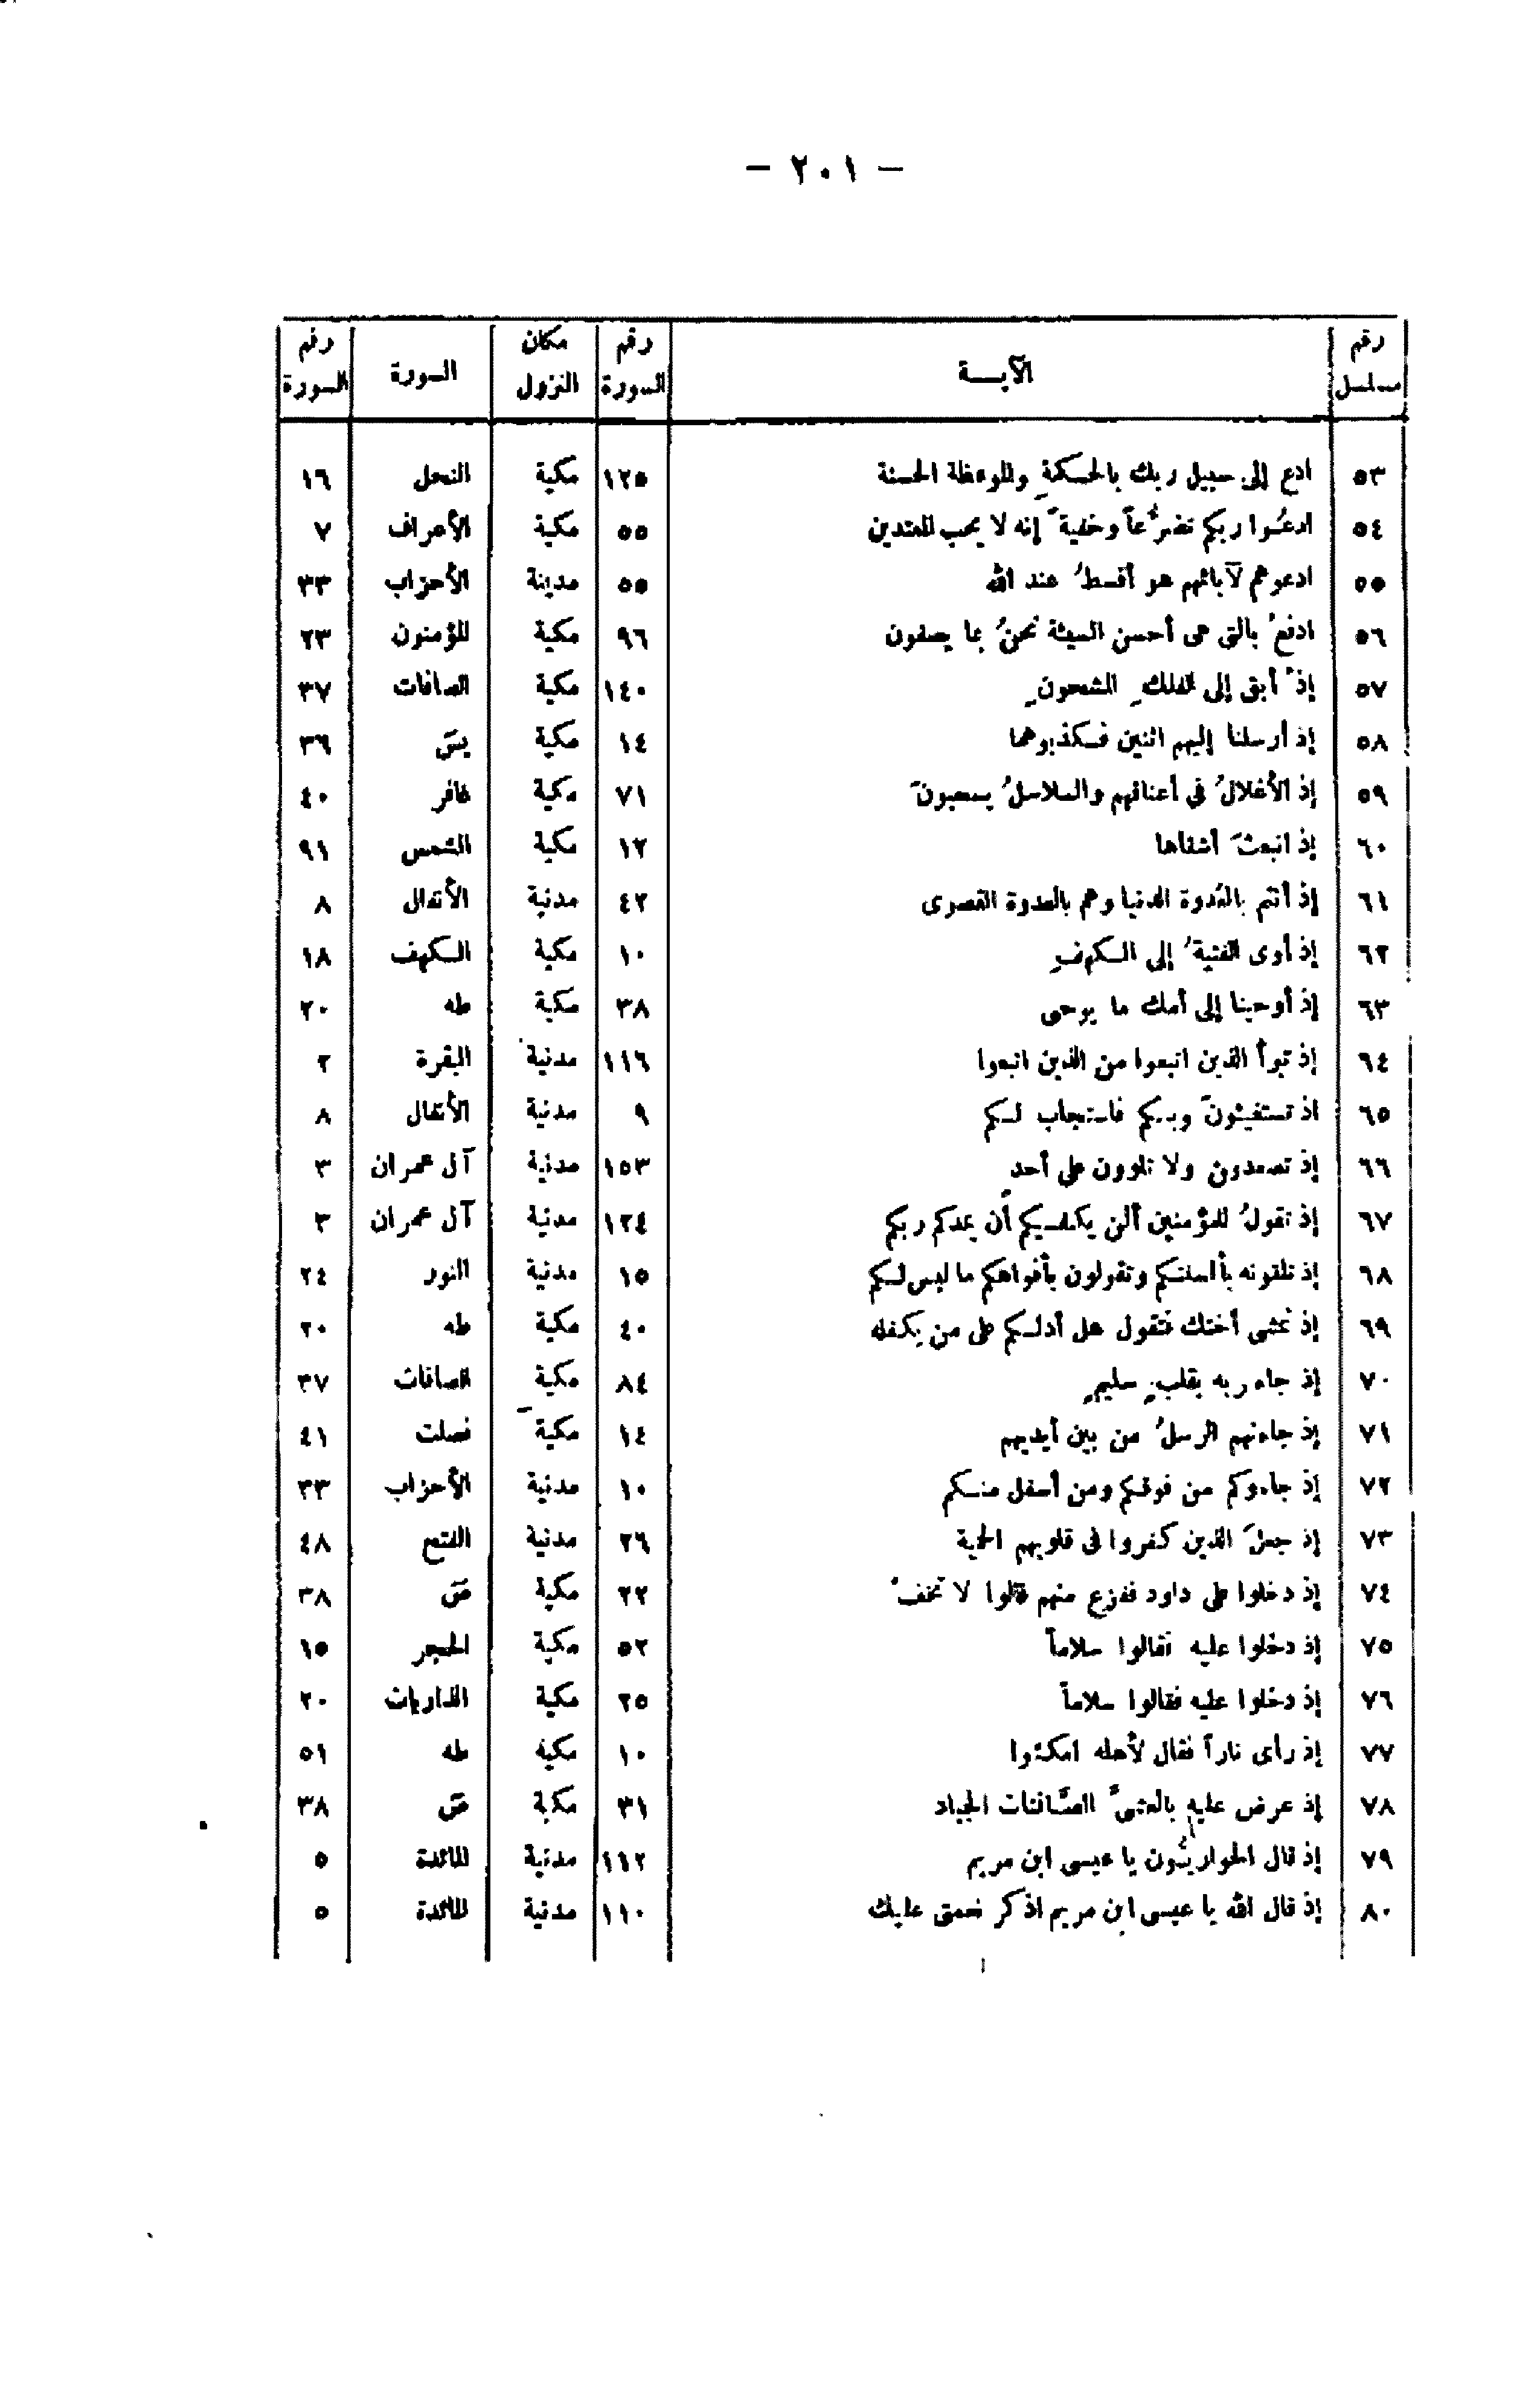 — ٢٠١ —
رقم مسلسل | الآيـــة | رقم السورة | مكان النزول | السورة | رقم السورة
٥٣ | ادع إلى سبيل ربك بالحكمةِ والموعظة الحسنة | ١٢٥ | مكية | النحل | ١٦
٥٤ | ادعُوا ربكم تضرُّعاً وخفيةً إنه لا يحب المعتدين | ٥٥ | مكية | الأعراف | ٧
٥٥ | ادعوهم لآبائهم هو أقسطُ عند الله | ٥٥ | مدينة | الأحزاب | ٣٣
٥٦ | ادفعْ بالتى هى أحسن السيئة نحنُ بما يصفون | ٩٦ | مكية | المؤمنون | ٢٣
٥٧ | إذْ أبق إلى الفلكِ المشحونِ | ١٤٠ | مكية | الصافات | ٣٧
٥٨ | إذ أرسلنا إليهم اثنين فكذبوهما | ١٤ | مكية | يسَ | ٣٦
٥٩ | إذ الأغلالُ فى أعناقهم والسلاسلُ يسحبونَ | ٧١ | مكية | غافر | ٤٠
٦٠ | إذ انبعثَ أشقاها | ١٢ | مكية | الشمس | ٩١
٦١ | إذ أنتم بالعُدوة الدنيا وهم بالعدوة القصرى | ٤٢ | مدنية | الأنفال | ٨
٦٢ | إذ أوى الفتيةُ إلى الكهفِ | ١٠ | مكية | الكهف | ١٨
٦٣ | إذ أوحينا إلى أمك ما يوحى | ٣٨ | مكية | طه | ٢٠
٦٤ | إذ تبرأ الذين اتبعوا من الذين اتبعوا | ١١٦ | مدنية | البقرة | ٢
٦٥ | اذ تستغيثونَ ربكم فاستجاب لكم | ٩ | مدنية | الأنفال | ٨
٦٦ | إذ تصعدون ولا تلوون على أحدٍ | ١٥٣ | مدنية | آل عمران | ٣
٦٧ | إذ تقولُ للمؤمنين ألن يكفيكم أن يمدكم ربكم | ١٢٤ | مدنية | آل عمران | ٣
٦٨ | إذ تلقونه بألسنتكم وتقولون بأفواهكم ما ليس لكم | ١٥ | مدنية | النور | ٢٤
٦٩ | إذ تمشى أختك فتقول هل أدلكم على من يكفله | ٤٠ | مكية | طه | ٢٠
٧٠ | إذ جاء ربه بقلبٍ سليمٍ | ٨٤ | مكية | الصافات | ٣٧
٧١ | إذ جاءتهم الرسلُ من بين أيديهم | ١٤ | مكية | فصلت | ٤١
٧٢ | إذ جاءوكم من فوقكم ومن أسفل منكم | ١٠ | مدنية | الأحزاب | ٣٣
٧٣ | إذ جعلَ الذين كفروا فى قلوبهم الحمية | ٢٦ | مدنية | الفتح | ٤٨
٧٤ | إذ دخلوا على داود ففزع منهم قالوا لا تخفْ | ٢٢ | مكية | صَ | ٣٨
٧٥ | إذ دخلوا عليه فقالوا سلاماً | ٥٢ | مكية | الحجر | ١٥
٧٦ | إذ دخلوا عليه فقالوا سلاماً | ٢٥ | مكية | الذاريات | ٢٠
٧٧ | إذ رأى ناراً فقال لأهله امكثوا | ١٠ | مكية | طه | ٥١
٧٨ | إذ عرض عليه بالعشىِّ الصَّافنات الجياد | ٣١ | مكية | صَ | ٣٨
٧٩ | إذ قال الحواريُّون يا عيسى ابن مريم | ١١٢ | مدنية | المائدة | ٥
٨٠ | إذ قال الله يا عيسى ابن مريم اذكر نعمتى عليك | ١١٠ | مدنية | المائدة | ٥